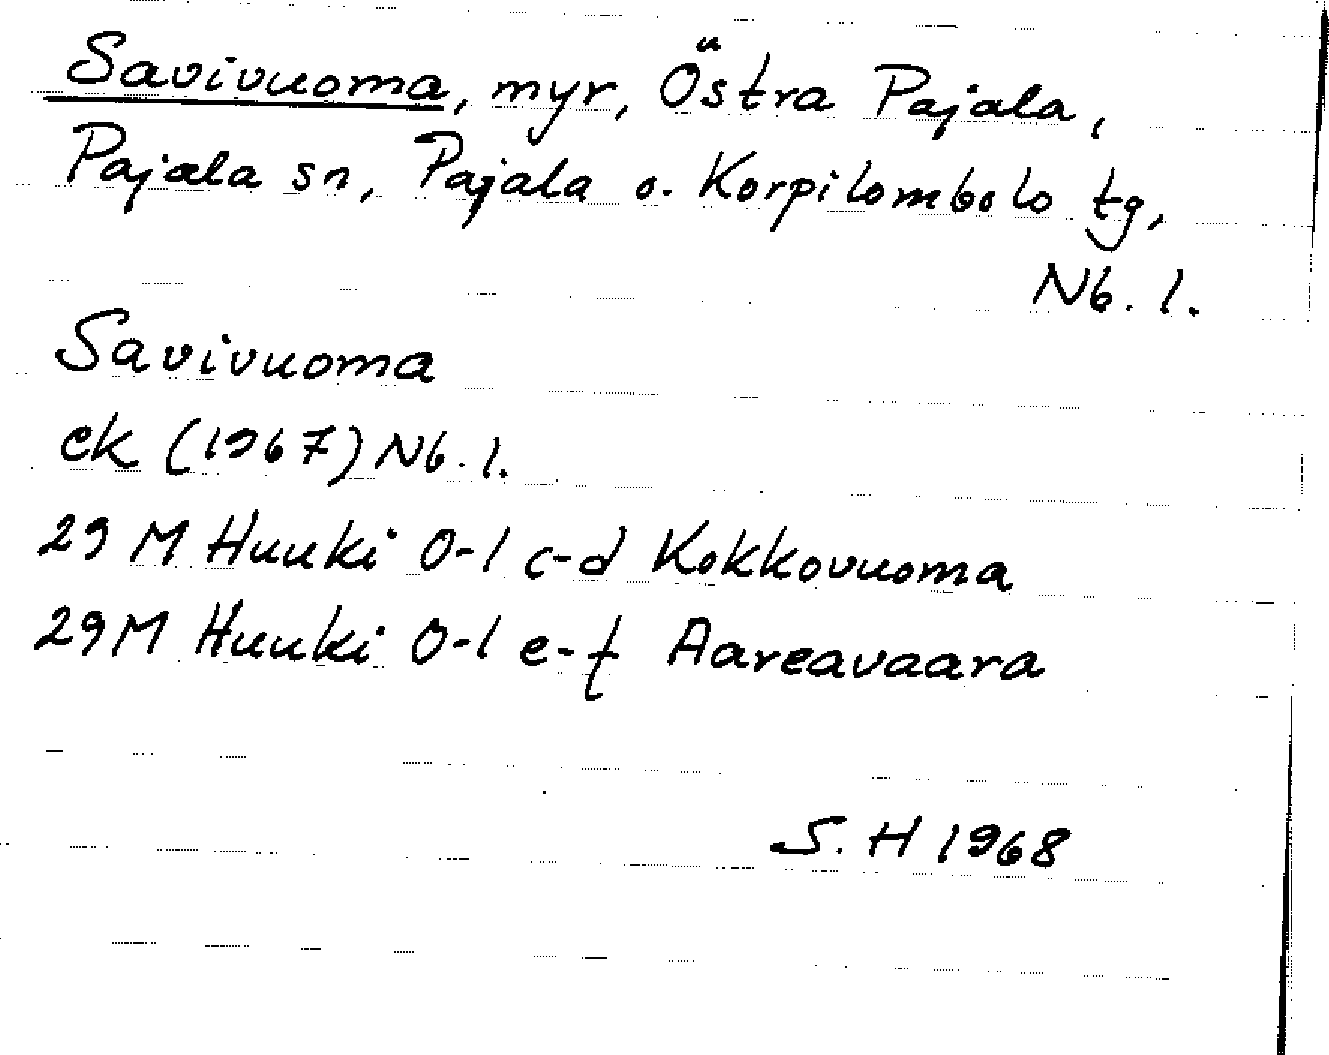 Savivuoma, myr, Östra Pajala,
Pajala sn, Pajala o. Korpilombolo tg,
Nb. l.
Savivuoma
ek (1967) Nb. l.
29 M Huuki 0-1 c-d Kokkovuoma
29M Huuki 0-1 e-f Aareavaara
S. H 1968